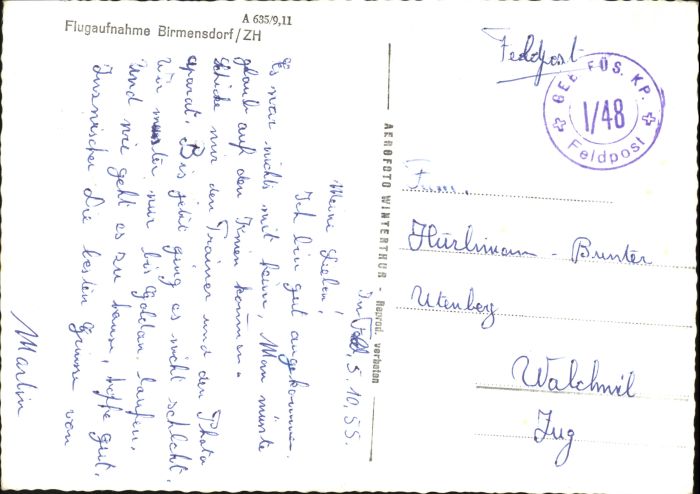 A 635/9,11
Flugaufnahme Birmensdorf/ZH
Feldpost
GEB. FÜS. KP.
I/48
Feldpost
AEROFOTO WINTERTHUR - Reprod. verboten
Fam.
Hürlimann - Bunter
Utenberg
Walchwil
Zug
Im Feld, 5.10.55.
Meine Lieben!
Ich bin gut angekommen.
Es war nichts mit heim, Man müsste
glaub auf den Knien kommen.
Schicke mir den Trainer und den Photo
aparat. Bis jetzt ging es nicht schlecht.
Wir mussten nur bis Goldau laufen.
Und wie geht es zu hause, hoffe gut.
Inzwischen die besten Grüsse von
Martin